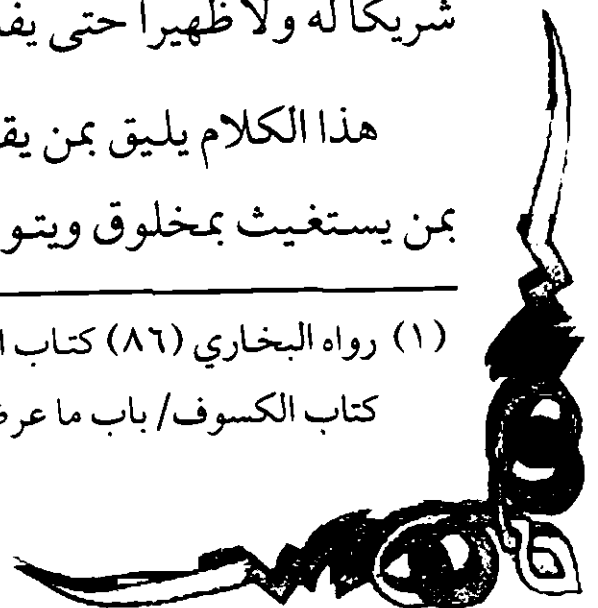 شريكا له ولا ظهيرا حتى
هذا الكلام يليق بمن
بمن يستغيث بمخلوق
(١) رواه البخاري (٨٦) كتاب
كتاب الكسوف/ باب ما